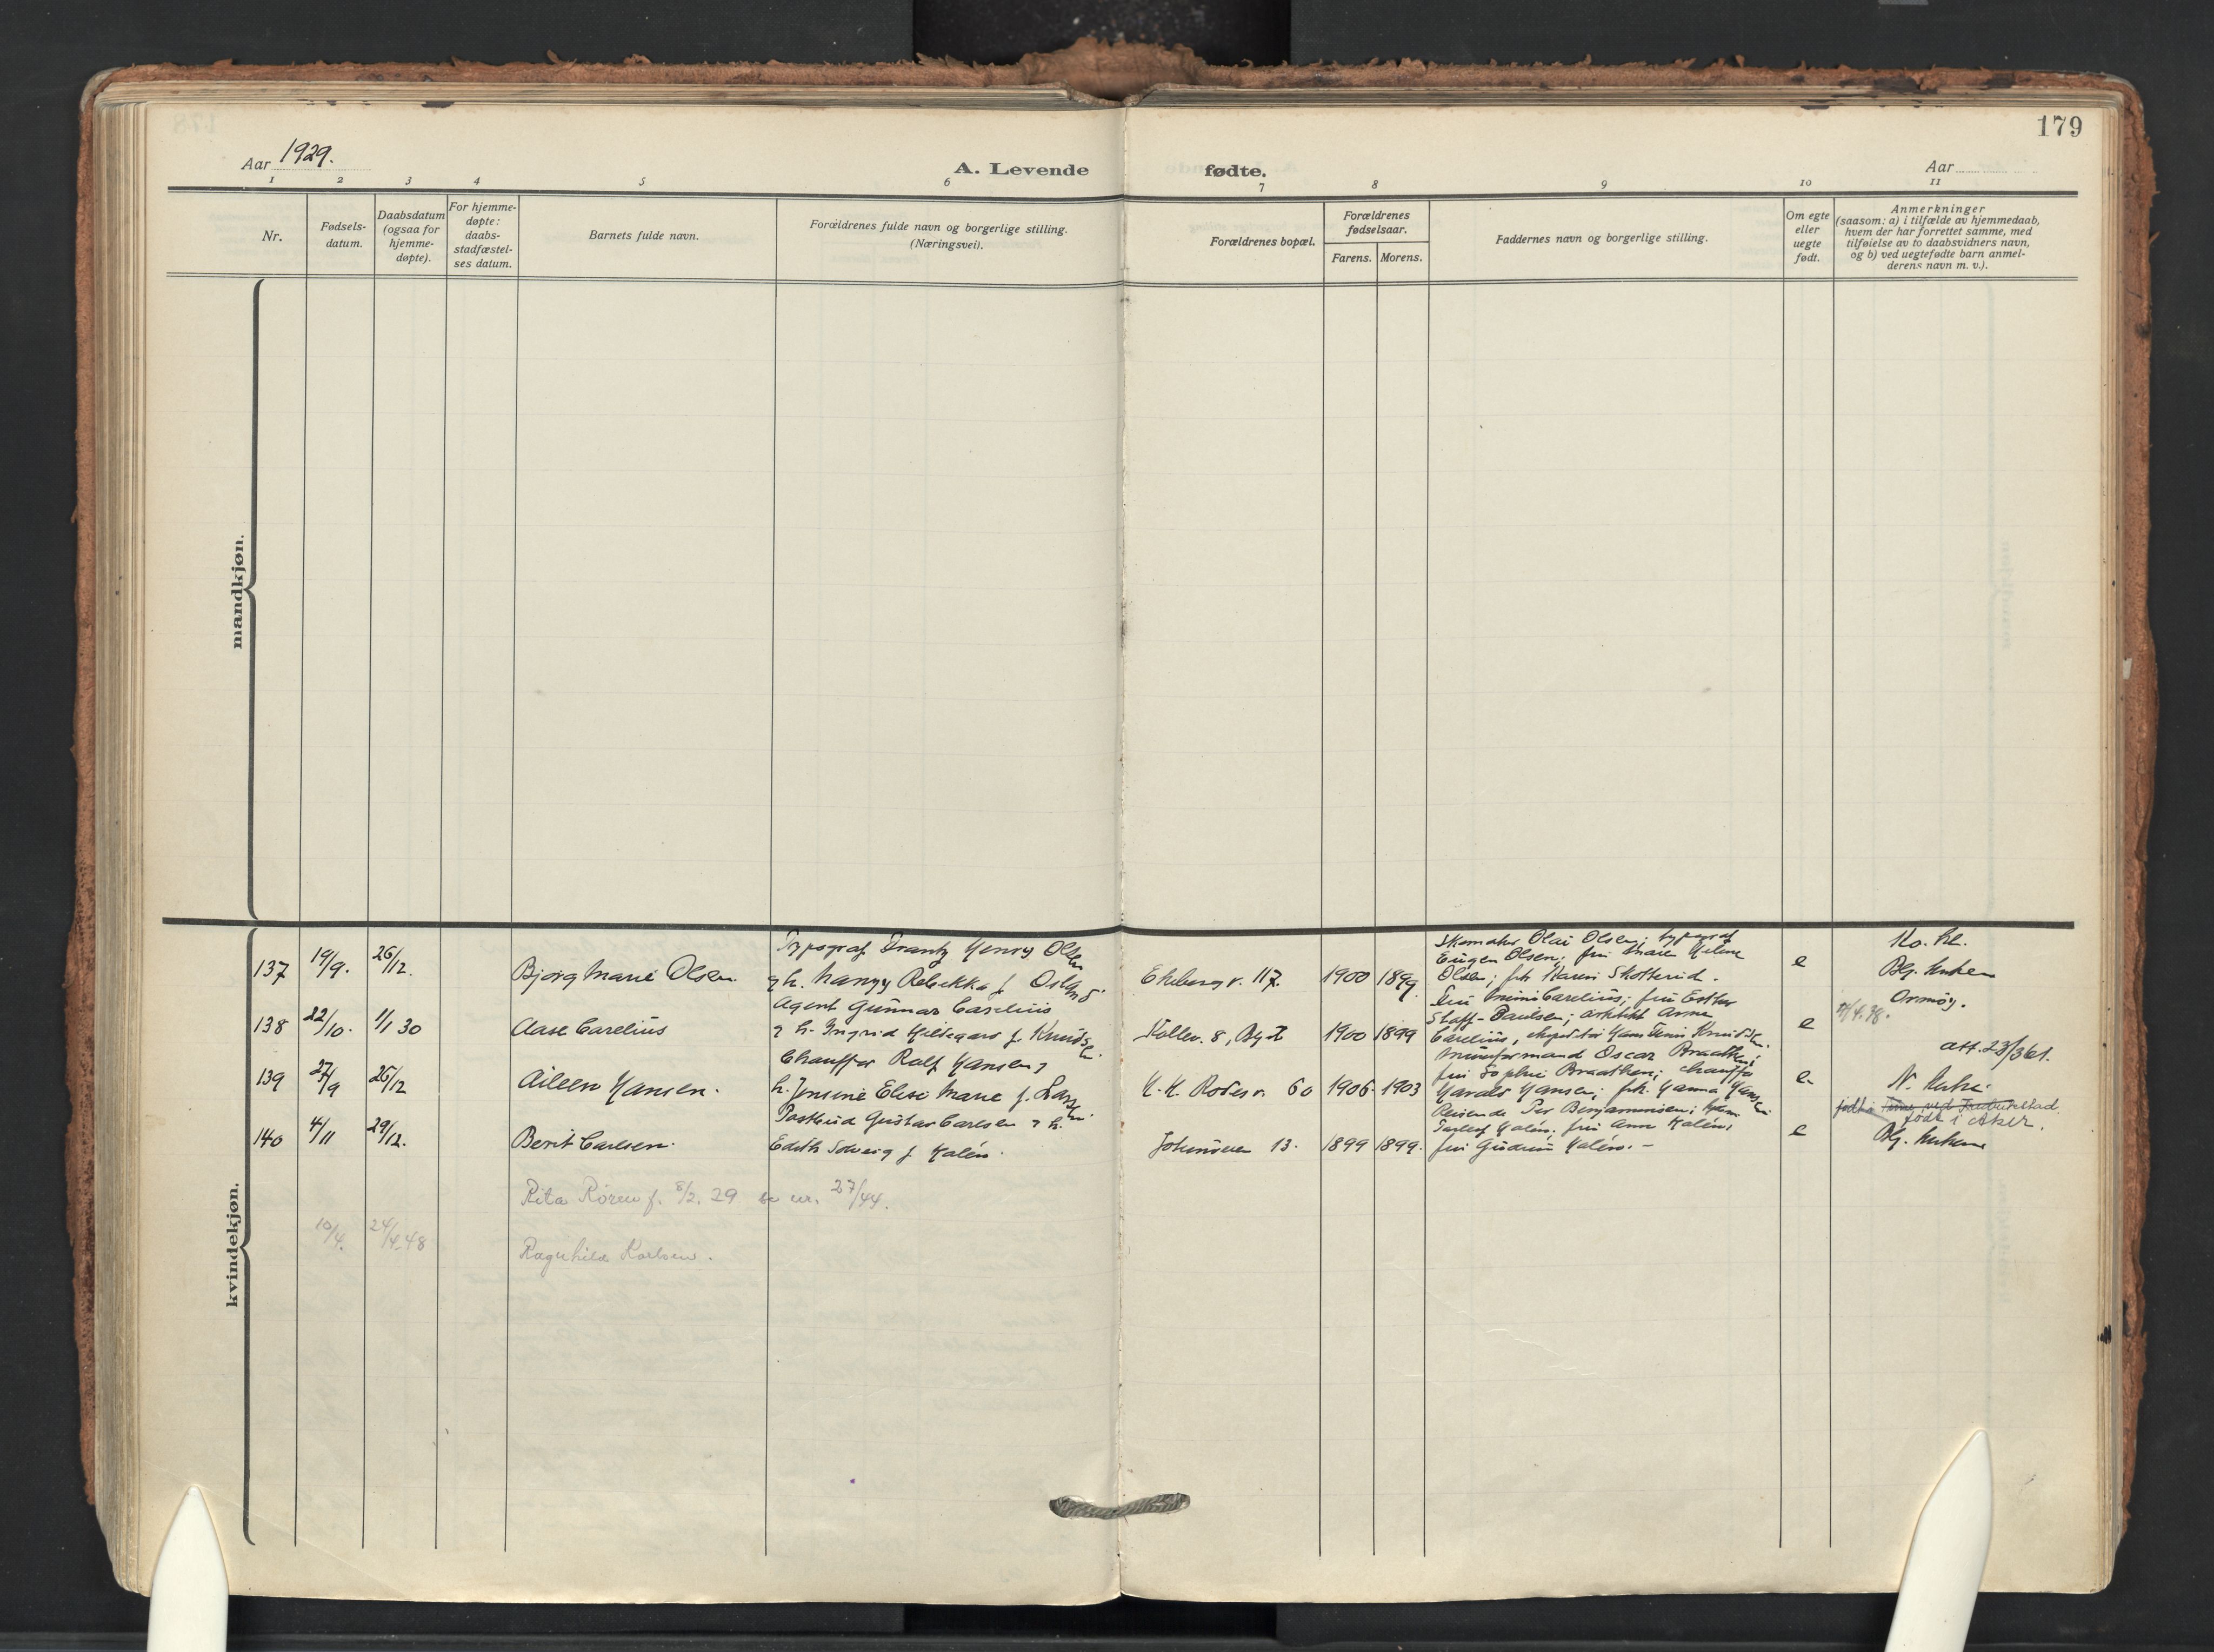 179
Aar 1929.
A. Levende fødte.
Aar
1 2 3 4 5 6 7 8 9 10 11
Nr.
Fødsels-
datum.
Daabsdatum
(ogsaa for
hjemme-
døpte).
For hjemme-
døpte:
daabs-
stadfæstel-
ses datum.
Barnets fulde navn.
Forældrenes fulde navn og borgerlige stilling.
(Næringsvei).
Forældrenes bopæl.
Forældrenes
fødselsaar.
Farens. Morens.
Faddernes navn og borgerlige stilling.
Om egte
eller
uegte
født.
Anmerkninger
(saasom: a) i tilfælde av hjemmedaab,
hvem der har forrettet samme, med
tilføielse av to daabsvidners navn,
og b) ved uegtefødte barn anmel-
derens navn m. v.).
mandkjøn.
kvindekjøn.
137 19/9. 26/12. Bjørg Marie Olsen.
Typograf Frantz Henry Olsen
og h. Nanny Rebekka f.
Ekeberg v. 117. 1900 1899
Olai Olsen; typograf
Eugen Olsen; fru Maren Helene
Olsen; frk Karen Skotterud.
e
138 22/10. 1/1 30 Aase Carelius
Agent Gunnar Carelius
h. Ingrid Hildegard f. Knudsen.
8, 1900 1899
Fru Mimi Carelius; fru Esther
Staff-Paulsen; arkitekt Arne
Carelius, Knudsen.
e
Ormøy.
139 27/9 26/12 Aileen Hansen.
Chauffør Rolf Hansen
h. Jensine Elise Marie f.
60 1906 1903
Murerformand Oscar Braathen;
fru Sophie Braathen; chauffør
Harald Hansen; frk. Hanna Hansen
e
att. 23/3 61.
140 4/11 29/12. Berit Carlsen.
Postbud Gustav Carlsen h.
Edith Solveig f. Halén.
13. 1899 1899.
Reisende Per Benjaminsen;
Halén; fru Anna Halén;
fru Gudrun Halén.
e
født i ved Fredrikstad.
født i Aker.
Rita Røren f. 8/2. 29 se nr. 27/44.
10/4. 24/4.48 Ragnhild Karlsen.